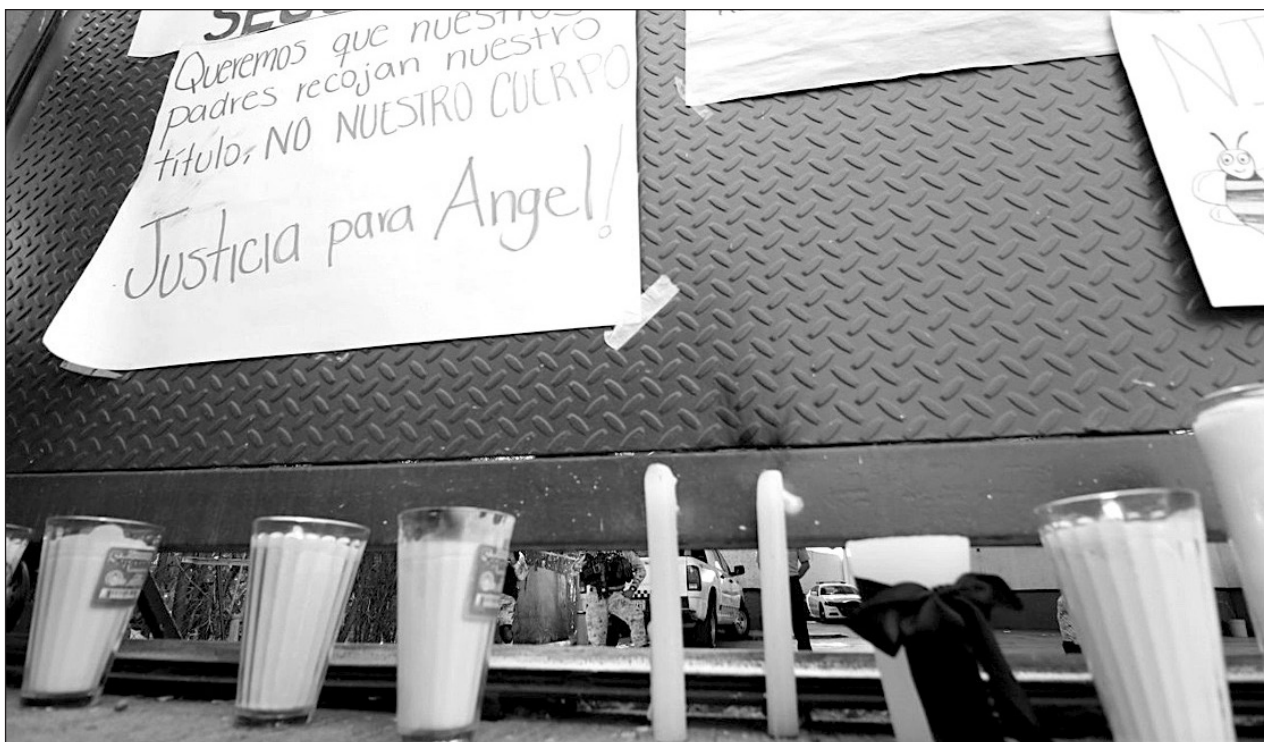 Queremos que nuestros
padres recojan nuestro
título, NO NUESTRO CUERPO
Justicia para Angel!